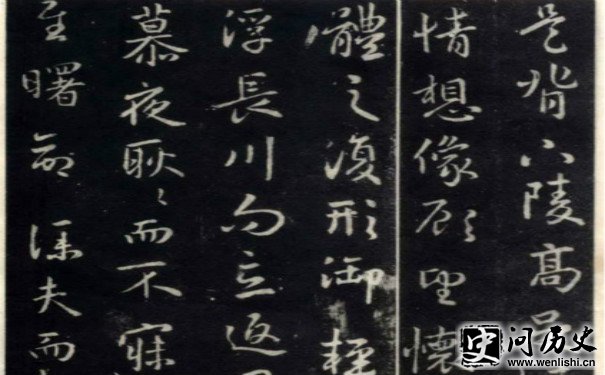 是背下陵高
情想像顧望懷
體之復形御輕
浮長川而忘返
慕夜耿〻而不寐
至曙命僕夫而
史 问历史
www.wenlishi.cn